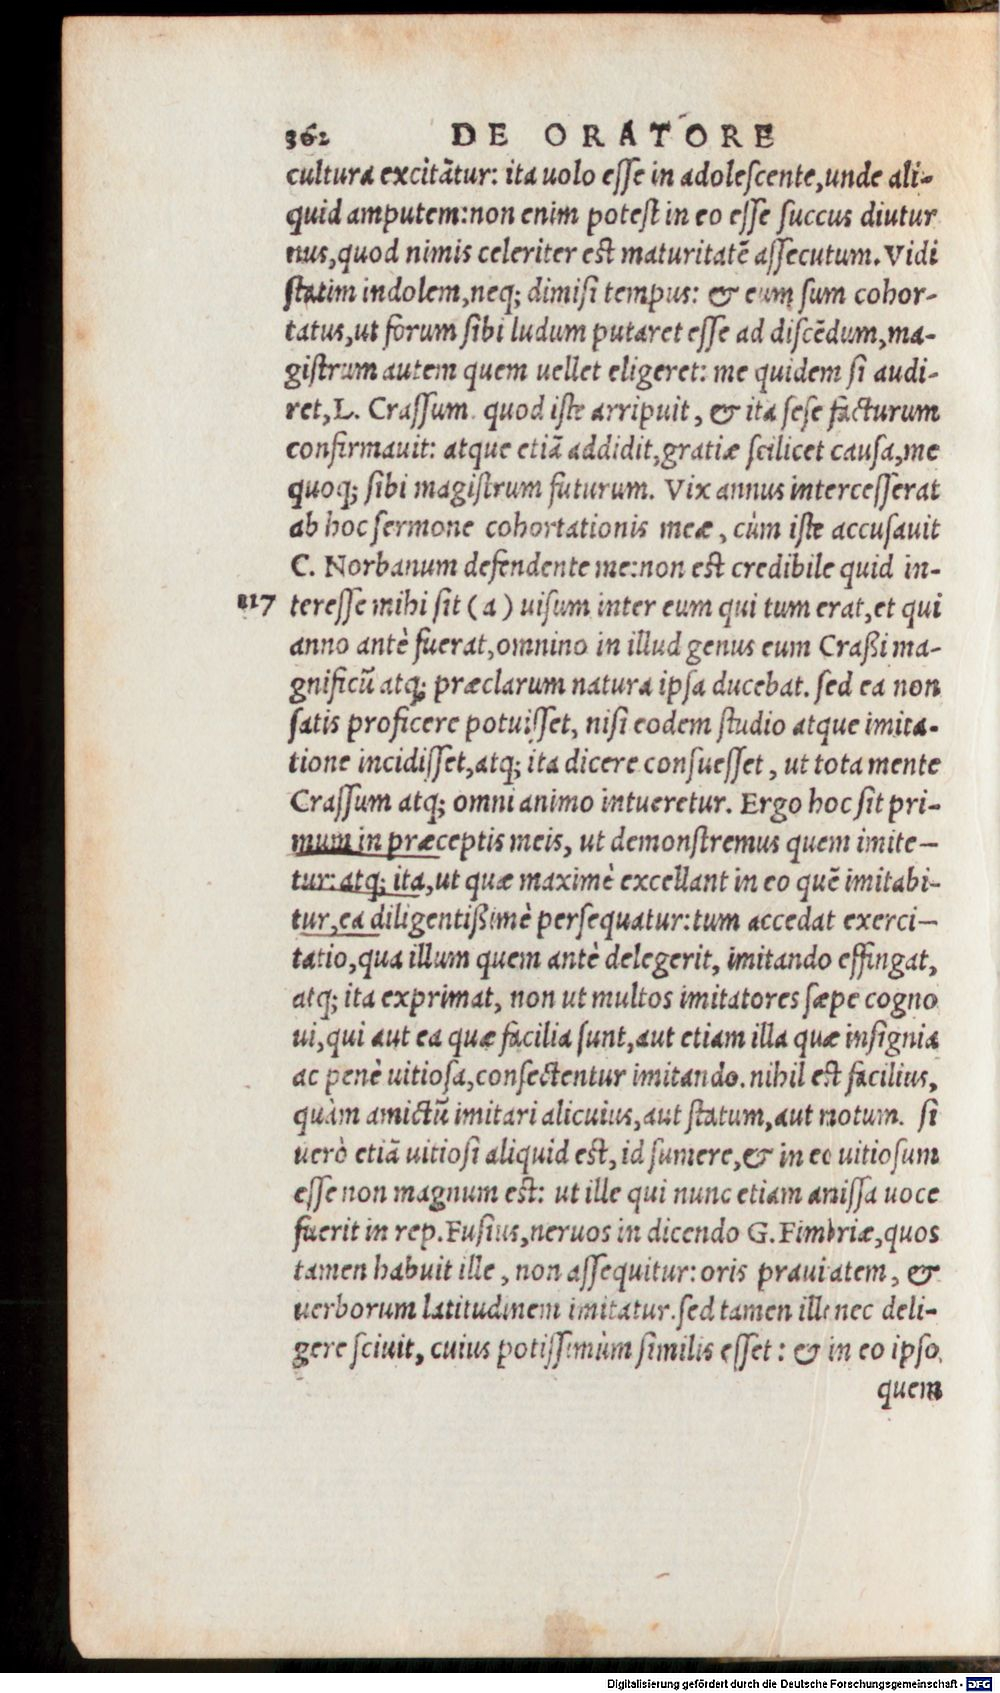 362 DE ORATORE
cultura excitãtur: ita uolo esse in adolescente, unde ali-
quid amputem: non enim potest in eo esse succus diutur
nus, quod nimis celeriter est maturitatẽ assecutum. Vidi
statim indolem, neq; dimisi tempus: & eum sum cohor-
tatus, ut forum sibi ludum putaret esse ad discẽdum, ma-
gistrum autem quem uellet eligeret: me quidem si audi-
ret, L. Crassum. quod iste arripuit, & ita sese facturum
confirmauit: atque etiã addidit, gratiæ scilicet causa, me
quoq; sibi magistrum futurum. Vix annus intercesserat
ab hoc sermone cohortationis meæ, cùm iste accusauit
C. Norbanum defendente me: non est credibile quid in-
217 teresse mihi sit (a) uisum inter eum qui tum erat, et qui
anno antè fuerat, omnino in illud genus eum Craßi ma-
gnificũ atq; præclarum natura ipsa ducebat. sed ea non
satis proficere potuisset, nisi eodem studio atque imita-
tione incidisset, atq; ita dicere consuesset, ut tota mente
Crassum atq; omni animo intueretur. Ergo hoc sit pri-
mum in præceptis meis, ut demonstremus quem imite-
tur: atq; ita, ut quæ maximè excellant in eo quẽ imitabi-
tur, ea diligentißimè persequatur: tum accedat exerci-
tatio, qua illum quem antè delegerit, imitando effingat,
atq; ita exprimat, non ut multos imitatores sæpe cogno
ui, qui aut ea quæ facilia sunt, aut etiam illa quæ insignia
ac penè uitiosa, consectentur imitando. nihil est facilius,
quàm amictũ imitari alicuius, aut statum, aut motum. si
uerò etiã uitiosi aliquid est, id sumere, & in eo uitiosum
esse non magnum est: ut ille qui nunc etiam amissa uoce
fuerit in rep. Fusius, neruos in dicendo G. Fimbriæ, quos
tamen habuit ille, non assequitur: oris prauitatem, &
uerborum latitudinem imitatur. sed tamen ille nec deli-
gere sciuit, cuius potissimùm similis esset: & in eo ipso
quem
Digitalisierung gefördert durch die Deutsche Forschungsgemeinschaft - DFG